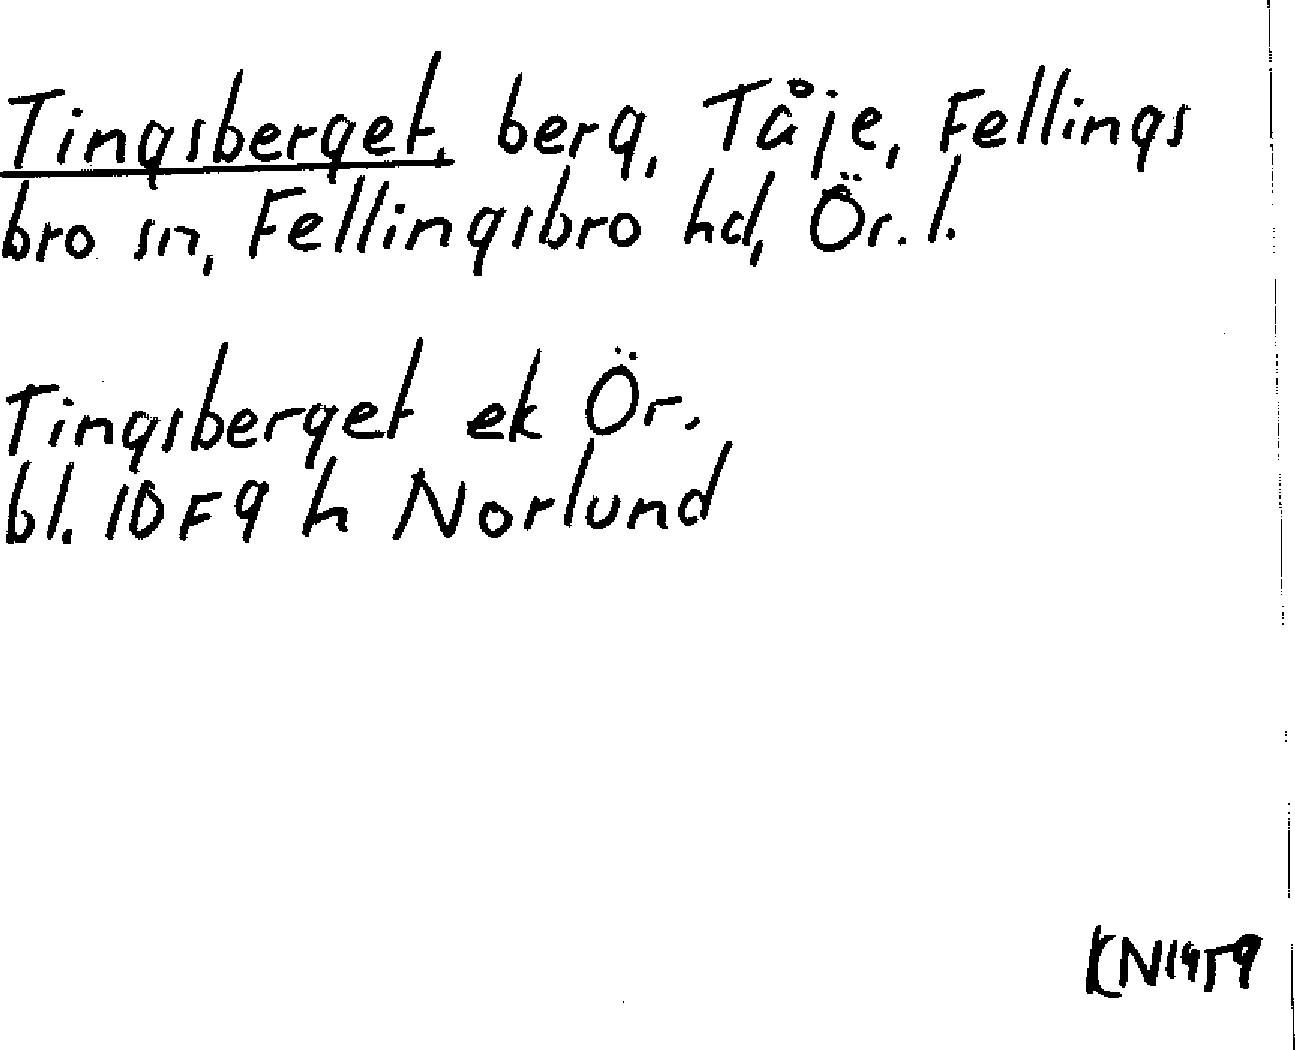 Tingsberget, berg, Tåje, Fellings
bro sn, Fellingsbro hd, Ör. l.
Tingsberget ek Ör.
bl. 10F9 h Norlund
KN1959